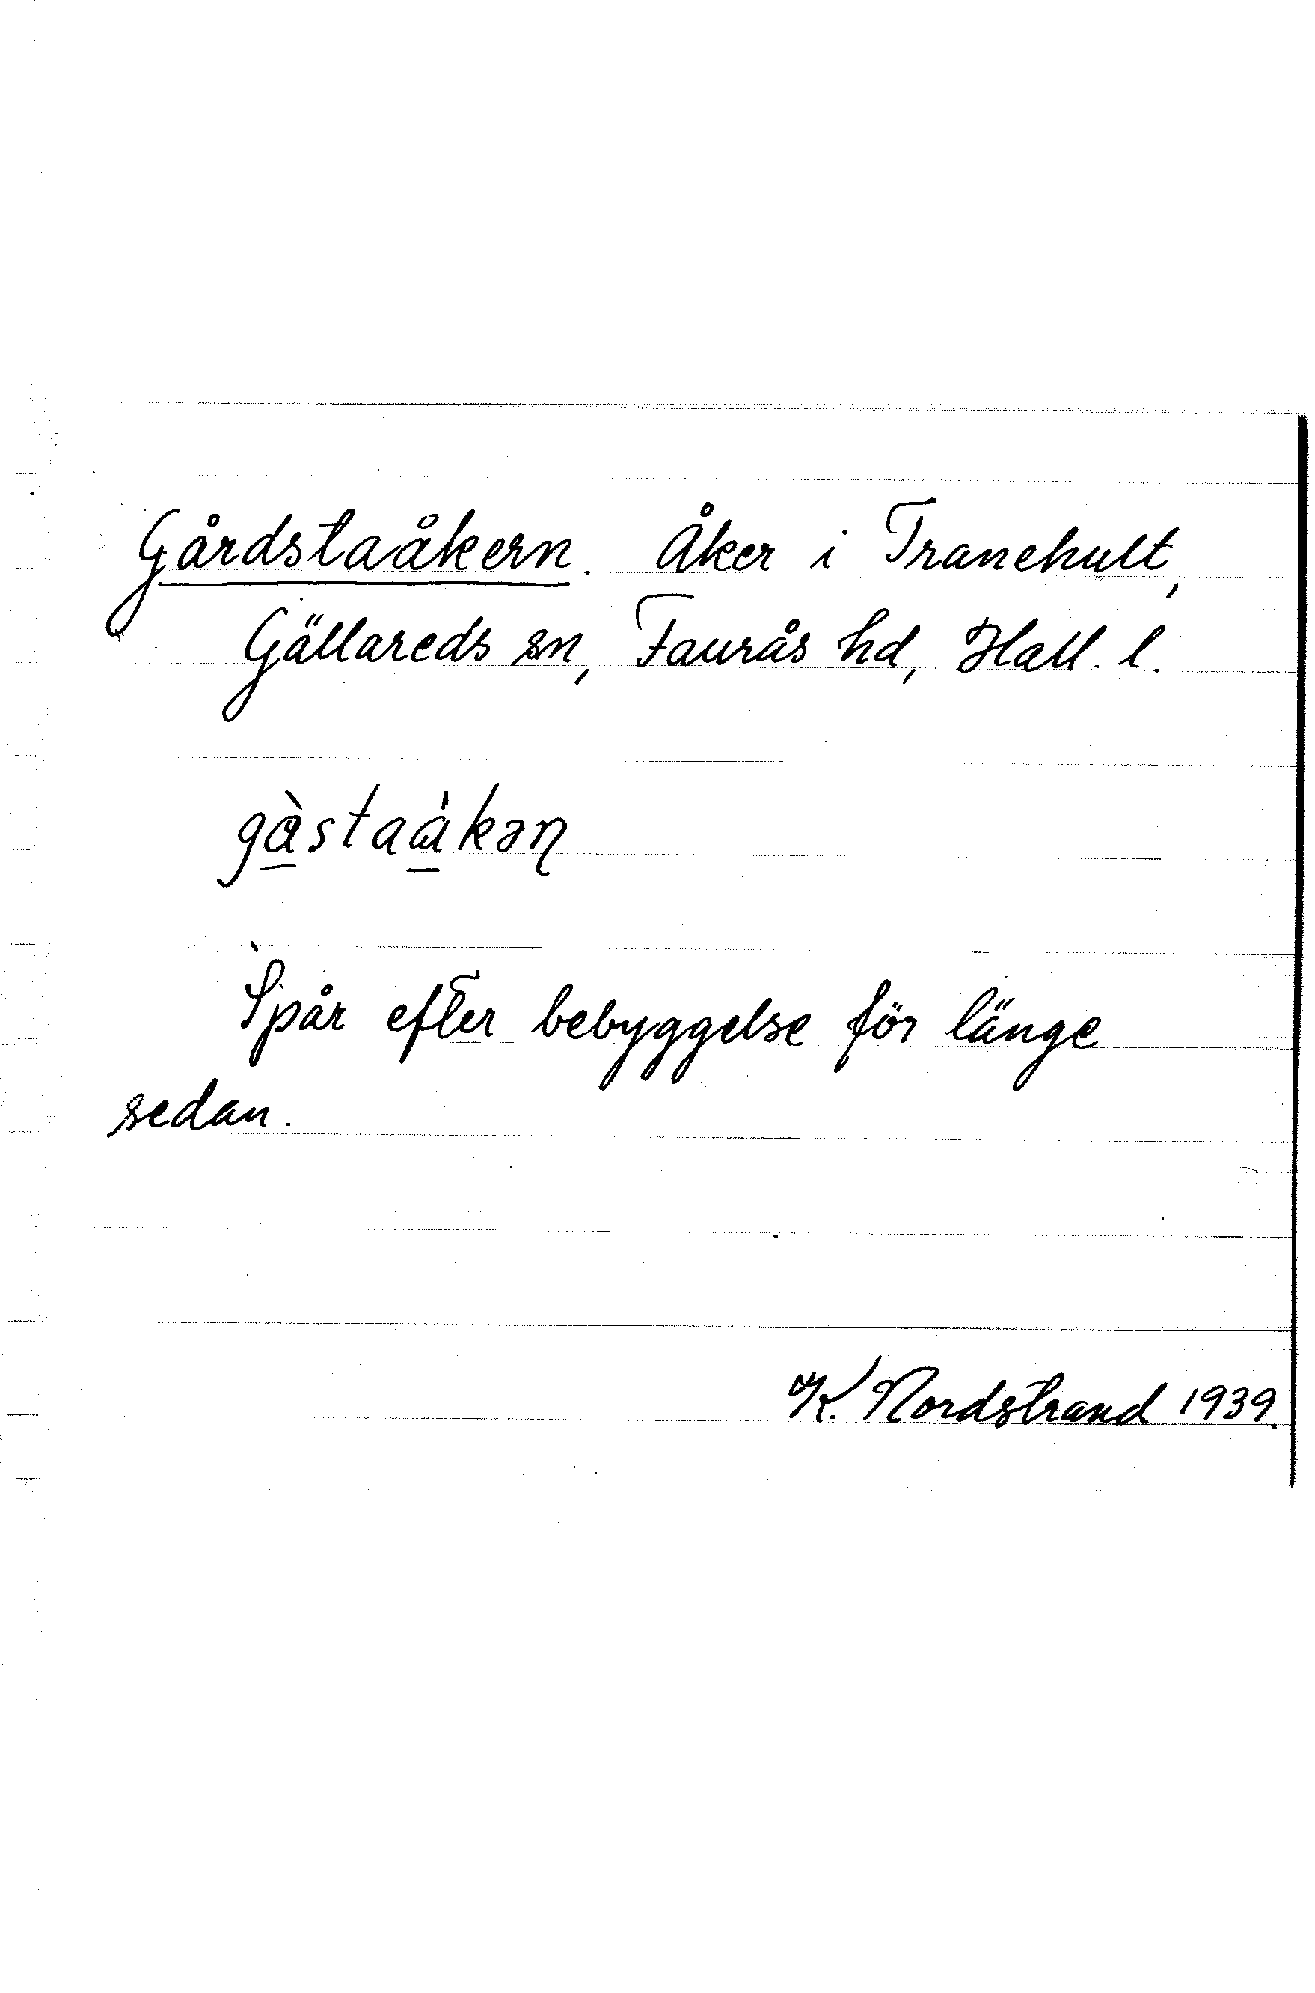 Gårdstaåkern. Åker i Tranehult,
Gällareds sn, Faurås hd, Hall. l.
gå̀staå̀kəɳ
Spår efter bebyggelse för länge
sedan.
K. Nordstrand 1939.